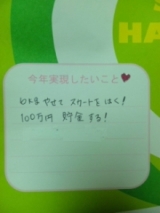 HA
今年実現したいこと♥
10kgやせてスカートをはく!
100万円 貯金する!